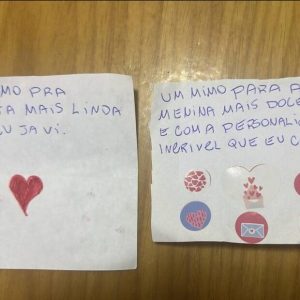 MO PRA
TA MAIS LINDA
U JA VI.
UM MIMO PARA A
MENINA MAIS DOCE
E COM A PERSONALI
INCRIVEL QUE EU C